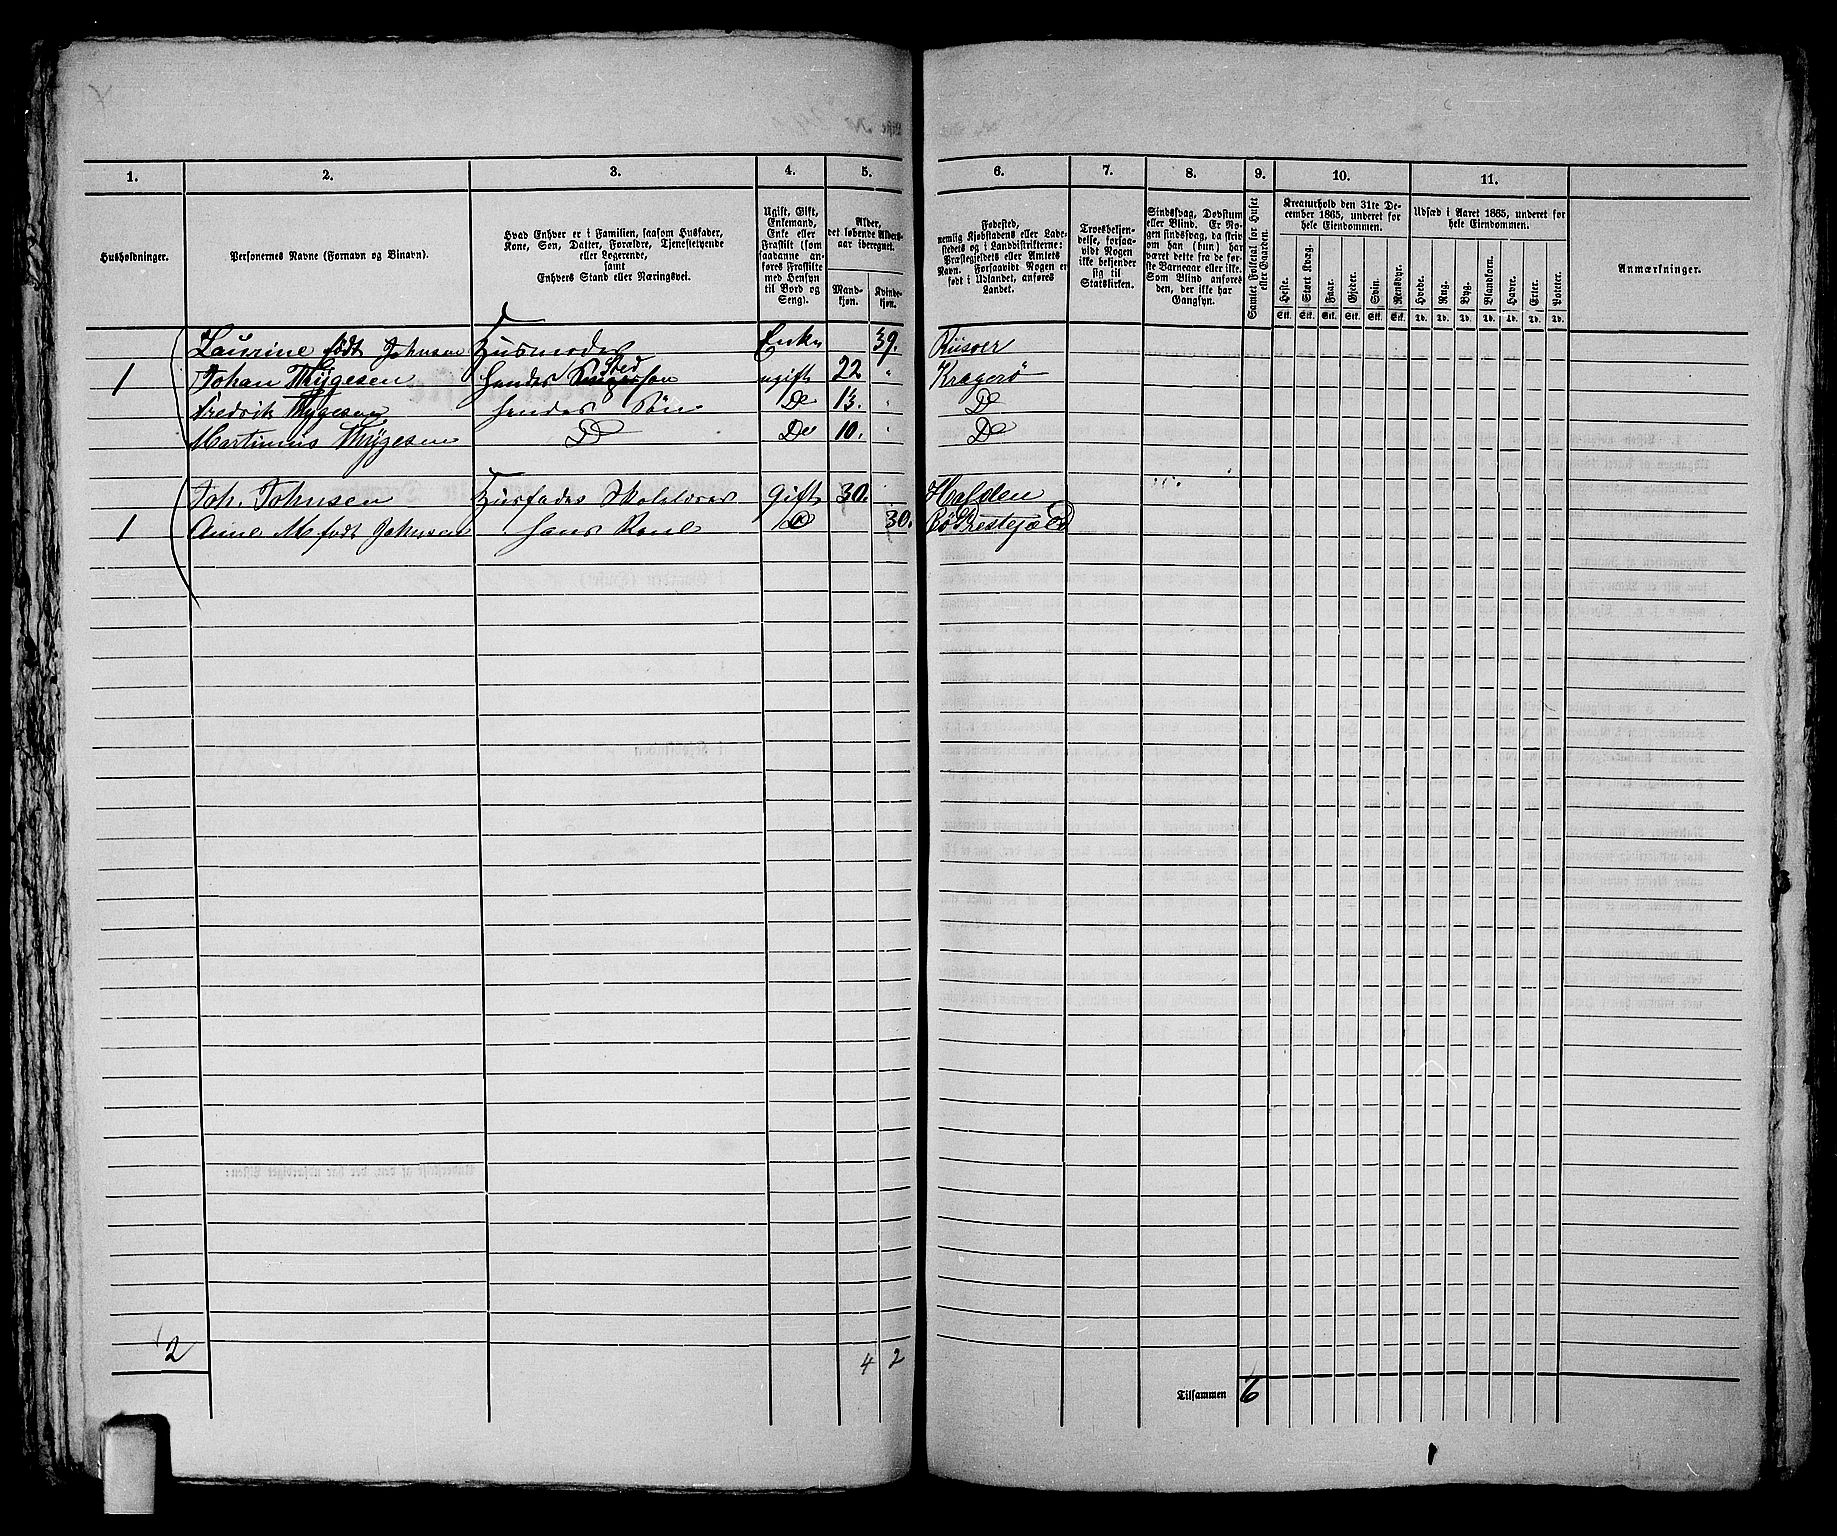 1.
2.
3.
4.
5.
6.
7.
8.
9.
10.
11.
Husholdninger.
Personernes Navne (Fornavn og Binavn).
Hvad Enhver er i Familien, saasom Husfader,
Kone, Søn, Datter, Forældre, Tjenestetyende
eller Logerende,
samt
Enhvers Stand eller Næringsvei.
Ugift, Gift,
Enkemand,
Enke eller
Fraskilt (som
saadanne an-
føres Fraskilte
med Hensyn
til Bord og
Seng).
Alder,
det løbende Alders-
aar iberegnet.
Mand-
kjøn.
Kvinde-
kjøn.
Fødested,
nemlig Kjøbstadens eller Lade-
stedets og i Landdistrikterne:
Præstegjeldets eller Amtets
Navn. Forsaavidt Nogen er
født i Udlandet, anføres
Landet.
Troesbekjen-
delse, forsaa-
vidt Nogen
ikke bekjender
sig til
Statskirken.
Sindssvag, Døvstum
eller Blind. Er No-
gen sindssvag, da skriv
om han (hun) har
været dette fra de før-
ste Barneaar eller ikke.
Som Blind anføres
den, der ikke har
Gangsyn.
Samlet Folketal for Huset
eller Gaarden.
Kreaturhold den 31te De-
cember 1865, underet for
hele Eiendommen.
Heste.
Stort Kvæg.
Faar.
Gjeder.
Svin.
Rensdyr.
Stk. Stk. Stk. Stk. Stk. Stk.
Udsæd i Aaret 1865, underet for
hele Eiendommen.
Hvede.
Rug.
Byg.
Blandkorn.
Havre.
Erter.
Poteter.
Td. Td. Td. Td. Td. Td. Td.
Anmærkninger.
Laurine født Johnsen Husmoder Enke 39. Riisøer
1 Johan Thygesen hendes Stedsøn ugift 22 " Kragerø
Fredrik Thygesen hendes Søn Do 13. " Do
Martinius Thygesen Do Do 10. " Do
Joh. Johnsen Husfader Skolelærer Gift 30. Halden
1 Anne M født Johnsen hans Kone Do 30. Bø Prestegjæld
2
4 2
Tilsammen 6